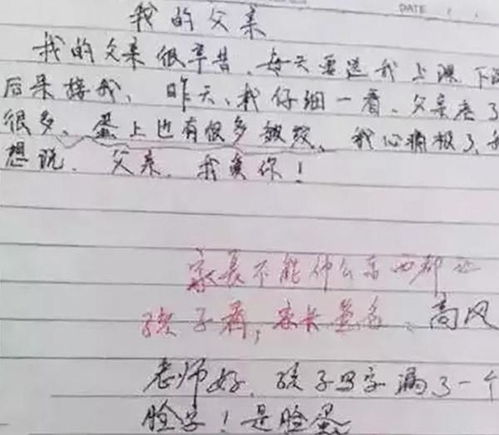 我的父亲
DATE
我的父亲很辛苦、每天要送我上课、下课
后来接我、昨天、我仔细一看、父亲老了
很多、蛋上也有很多皱纹、我心痛极了、我
想说、父亲、我爱你!
家长不能什么东西都让
孩子看,家长签名、高风
老师好、孩子写字漏了一个
脸字!是脸蛋